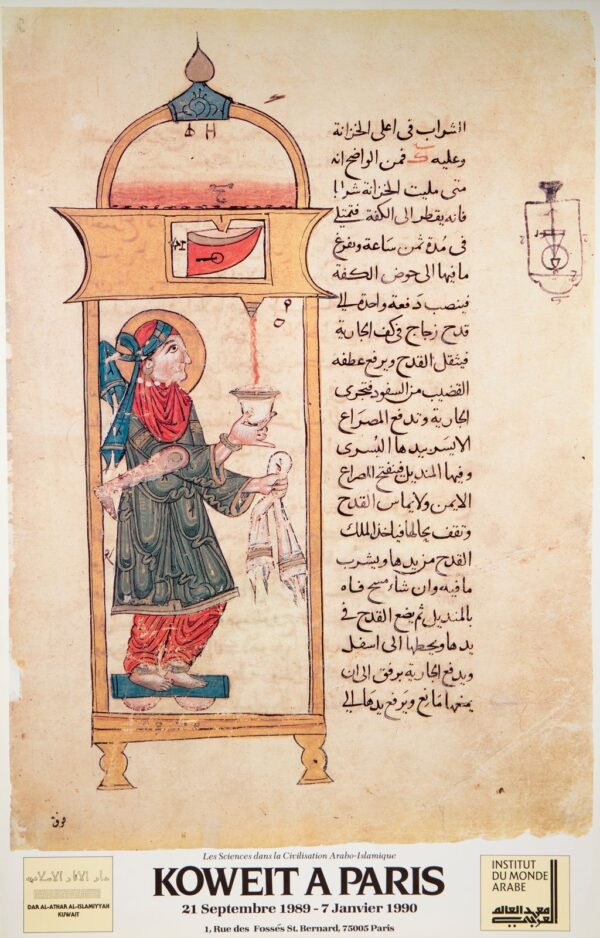 الشراب في اعلى الخزانة
وعليه ك فمن الواضح انه
متى مليت الخزانة شرابا
فانه يقطر الى الكفة فتمتلي
في مدة ثمن ساعة ويفرغ
ما فيها الى حوض الكفة
فينصب دفعة واحدة الى
قدح زجاج في كف الجارية
فيثقل القدح ويرفع عطفه
القضيب من السفود فتجرى
الجارية وتدفع المصراع
الايسر بيدها اليسرى
وفيها المنديل فينفتح المصراع
الايمن ولا يماس القدح
وتقف بحالها فياخذ الملك
القدح من يدها ويشرب
ما فيه وان شاء مسح فاه
بالمنديل ثم يضع القدح في
يدها ويحطها الى اسفل
ويدفع الجارية برفق الى ان
يمنعها مانع ويرفع يدها الى
Les Sciences dans la Civilisation Arabo-Islamique
KOWEIT A PARIS
21 Septembre 1989 - 7 Janvier 1990
1, Rue des Fossés St. Bernard, 75005 Paris
دار الآثار الإسلامية
DAR AL-ATHAR AL-ISLAMIYYAH
KUWAIT
INSTITUT
DU MONDE
ARABE
معهد العالم
العربي